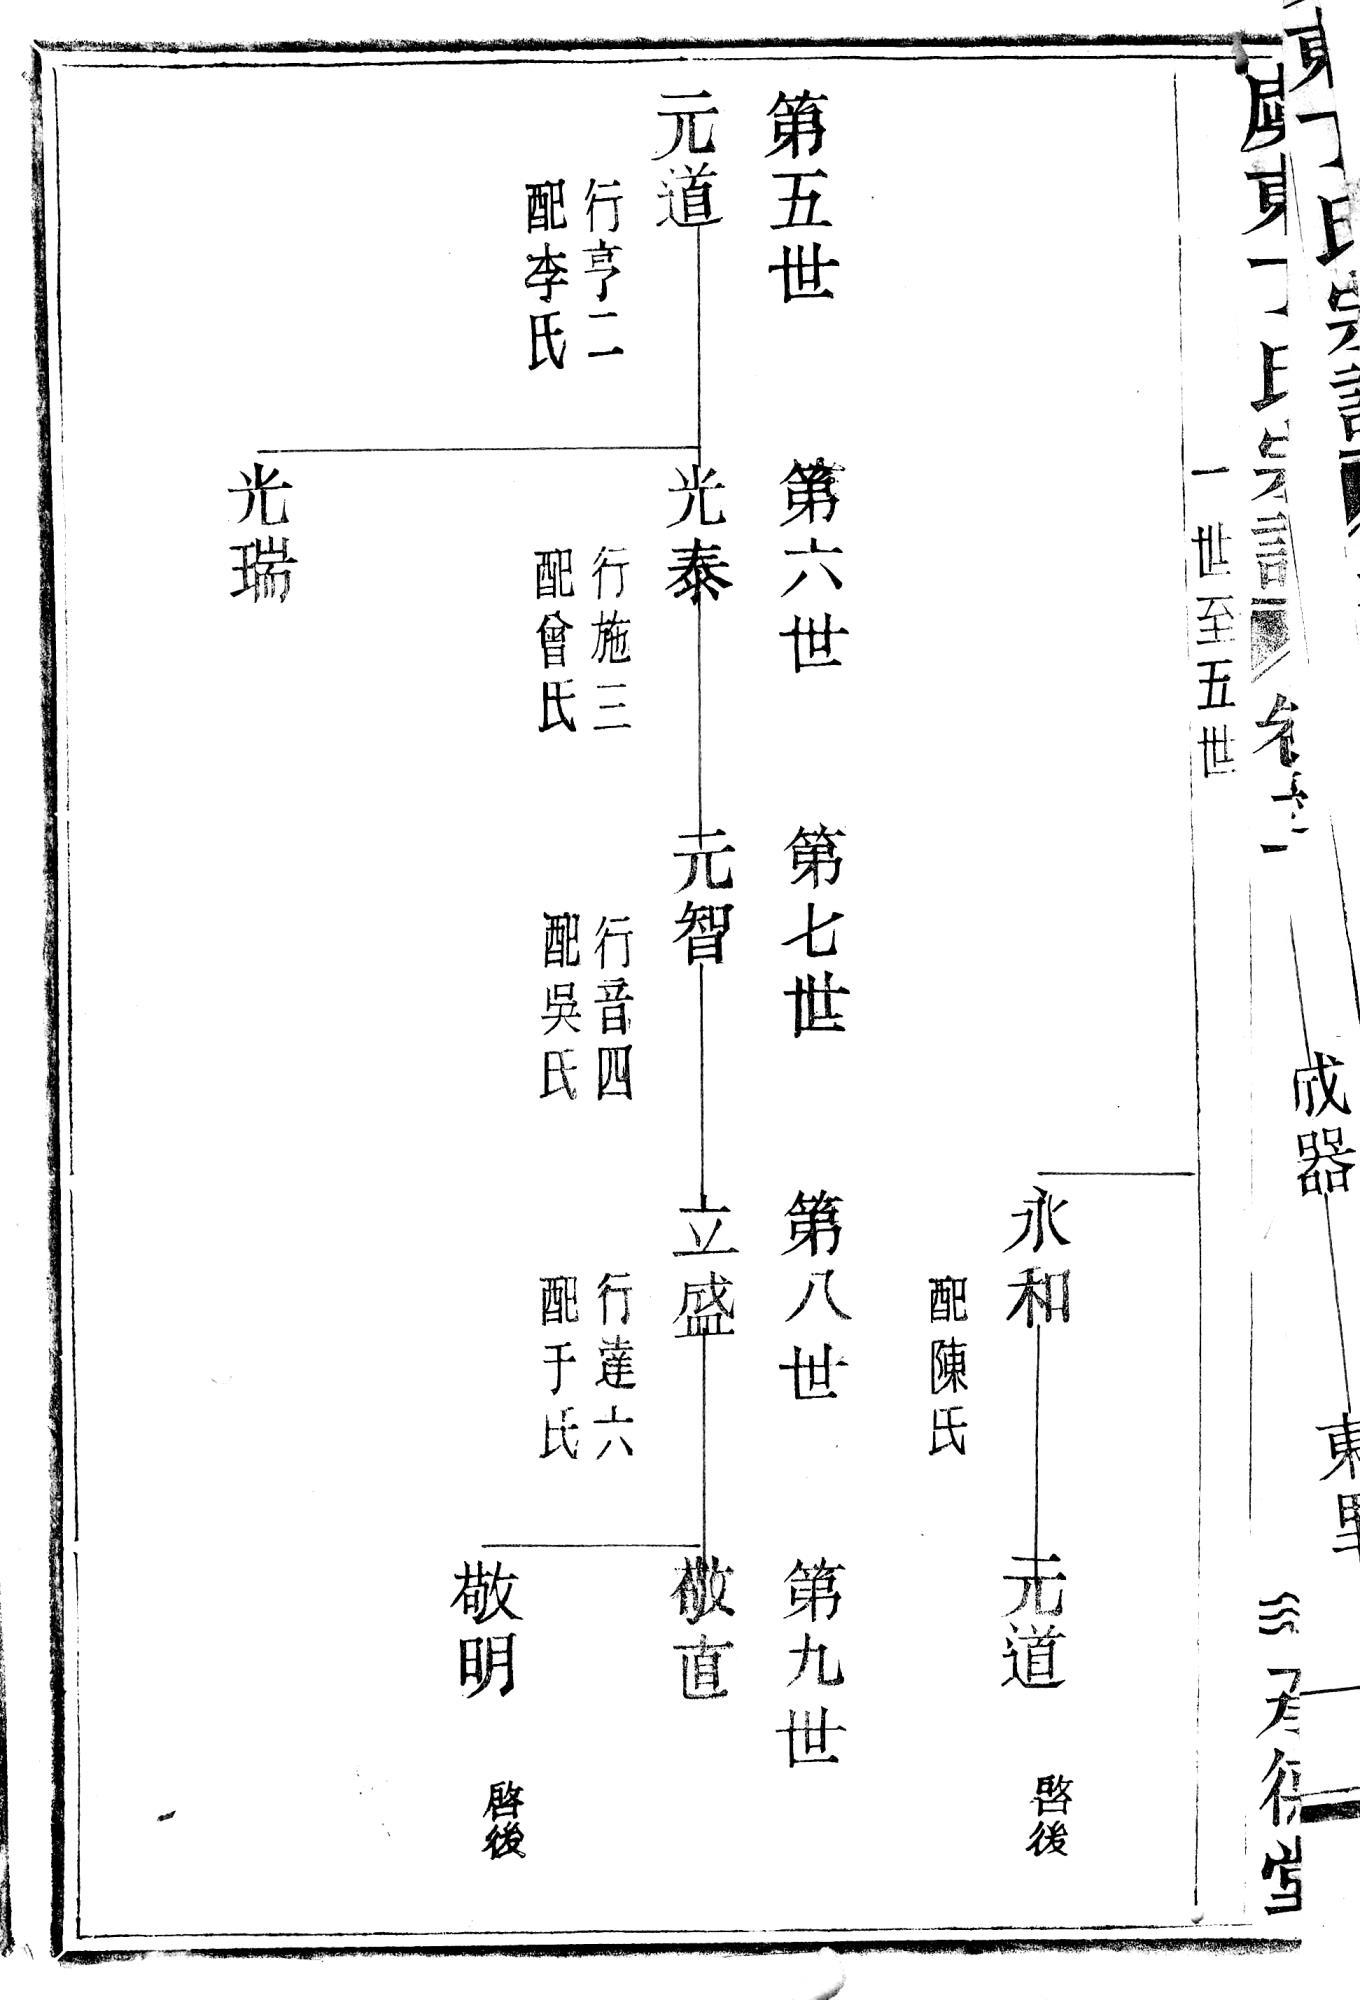 東丁氏宗譜
成器
東
東丁氏宗譜
卷
承德堂
一世至五世
永和
配陳氏
元道
啓後
第五世
第六世
第七世
第八世
第九世
元道
行亨二
配李氏
光泰
行施三
配曾氏
元智
行音四
配吳氏
立盛
行達六
配于氏
敬直
敬明
啓後
光瑞